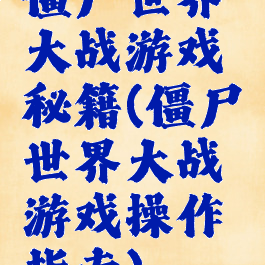 僵尸世界
大战游戏
秘籍(僵尸
世界大战
游戏操作
指南)